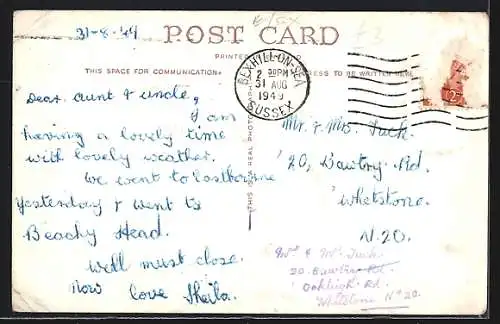 31-8-49
POST CARD
£3
PRINTED
THIS SPACE FOR COMMUNICATION
ADDRESS TO BE WRITTEN HERE
BEXHILL-ON-SEA
2 30PM
31 AUG
1949
SUSSEX
Dear aunt & uncle,
I am
having a lovely time
with lovely weather.
We went to Eastbourne
yesterday & went to
Beachy Head.
Well must close
now love Sheila.
THIS IS A REAL PHOTOGRAPH
Mr. & Mrs. Tuck.
20, Bawtry Rd.
Whetstone.
N.20.
Mr & Mrs Tuck
20 Bawtry Rd
Oakleigh Rd
Whetstone N 20